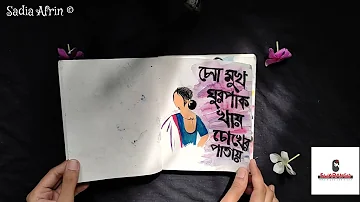 Sadia Afrin ©
চেনা মুখ
ঘুরপাক
খায়
চোখের
পাতায়